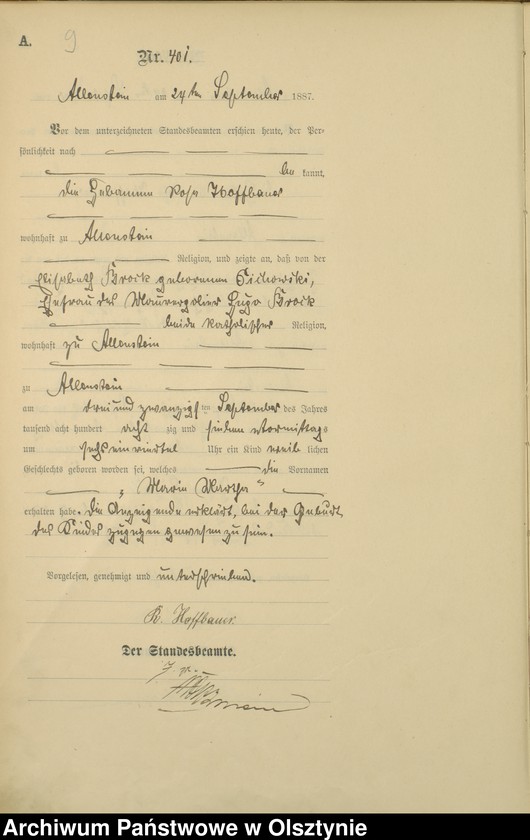 A.
9
Nr. 401.
Allenstein am 24ten September 1887.
Vor dem unterzeichneten Standesbeamten erschien heute, der Per-
sönlichkeit nach
be kannt,
die Hebamme Rosa Hoffbauer
wohnhaft zu Allenstein
Religion, und zeigte an, daß von der
Elisabeth Krock geborenen
Ehefrau des Maurerpolier Hugo Krock
beide katholischer Religion,
wohnhaft zu Allenstein
zu Allenstein
am drei und zwanzigsten September des Jahres
tausend acht hundert acht zig und sieben Vormittags
um sechs ein viertel Uhr ein Kind weib lichen
Geschlechts geboren worden sei, welches die Vornamen
„Maria Martha“
erhalten habe. Die Anzeigende erklärt, bei der Geburt
des Kindes zugegen gewesen zu sein.
Vorgelesen, genehmigt und unterschrieben.
R. Hoffbauer.
Der Standesbeamte.
Archiwum Państwowe w Olsztynie